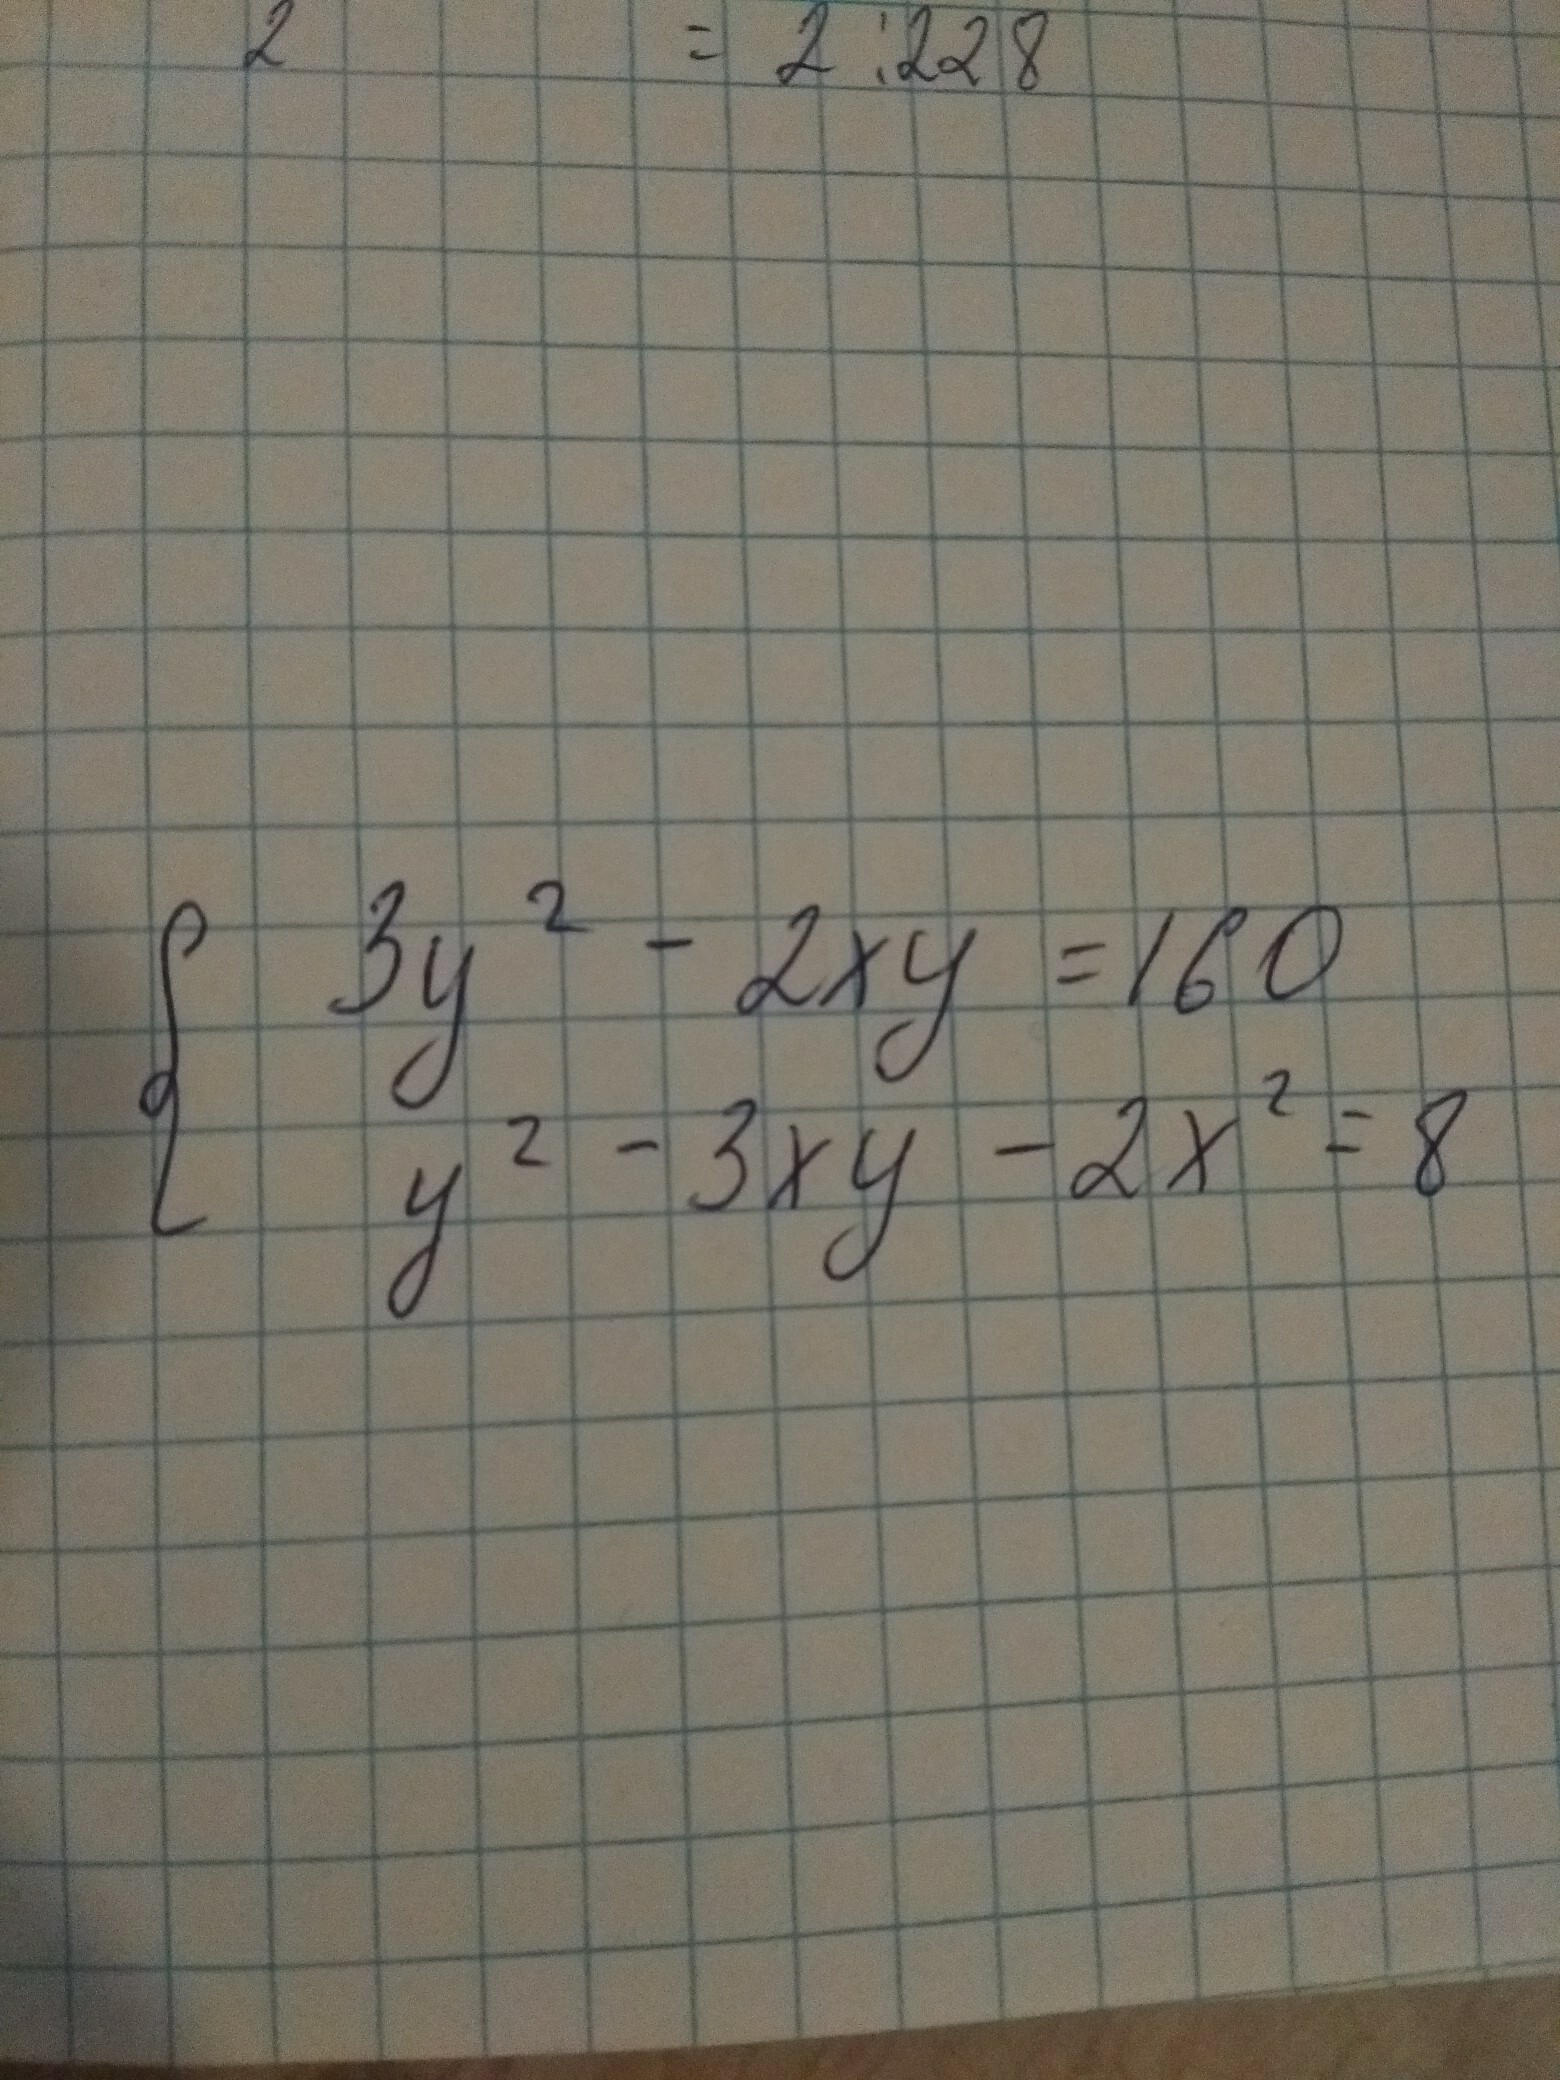 2 = 2 : 228
3y² - 2xy = 160
y² - 3xy - 2x² = 8